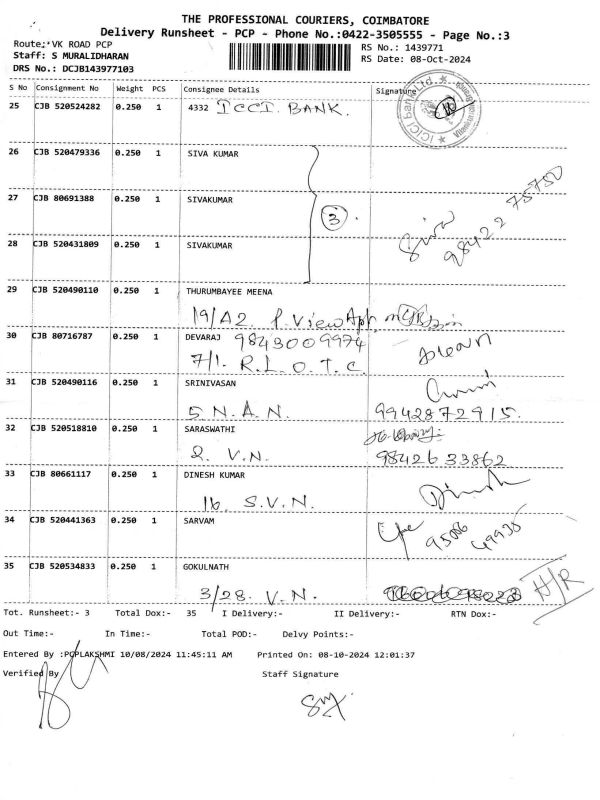 THE PROFESSIONAL COURIERS, COIMBATORE
Delivery Runsheet - PCP - Phone No.:0422-3505555 - Page No.:3
Route:*VK ROAD PCP RS No.: 1439771
Staff: S MURALIDHARAN RS Date: 08-Oct-2024
DRS No.: DCJB143977103
S No Consignment No Weight PCS Consignee Details Signature
25 CJB 520524282 0.250 1 4332 ICCI BANK.
ICICI Bank Ltd.
26 CJB 520479336 0.250 1 SIVA KUMAR
27 CJB 80691388 0.250 1 SIVAKUMAR
3
Siva
98422 75750
28 CJB 520431809 0.250 1 SIVAKUMAR
29 CJB 520490110 0.250 1 THURUMBAYEE MEENA
19/A2 P. View App
30 CJB 80716787 0.250 1 DEVARAJ 9843009974
7/1. R.L.O.T.C.
31 CJB 520490116 0.250 1 SRINIVASAN
5 N.A.N. 9942872915.
32 CJB 520518810 0.250 1 SARASWATHI
2. V.N. 98426 33862
33 CJB 80661117 0.250 1 DINESH KUMAR
16. S.V.N. Dinesh
34 CJB 520441363 0.250 1 SARVAM
95006 49935
35 CJB 520534833 0.250 1 GOKULNATH
3/28. V.N. H/R
Tot. Runsheet:- 3 Total Dox:- 35 I Delivery:- II Delivery:- RTN Dox:-
Out Time:- In Time:- Total POD:- Delvy Points:-
Entered By :PCPLAKSHMI 10/08/2024 11:45:11 AM Printed On: 08-10-2024 12:01:37
Verified By Staff Signature